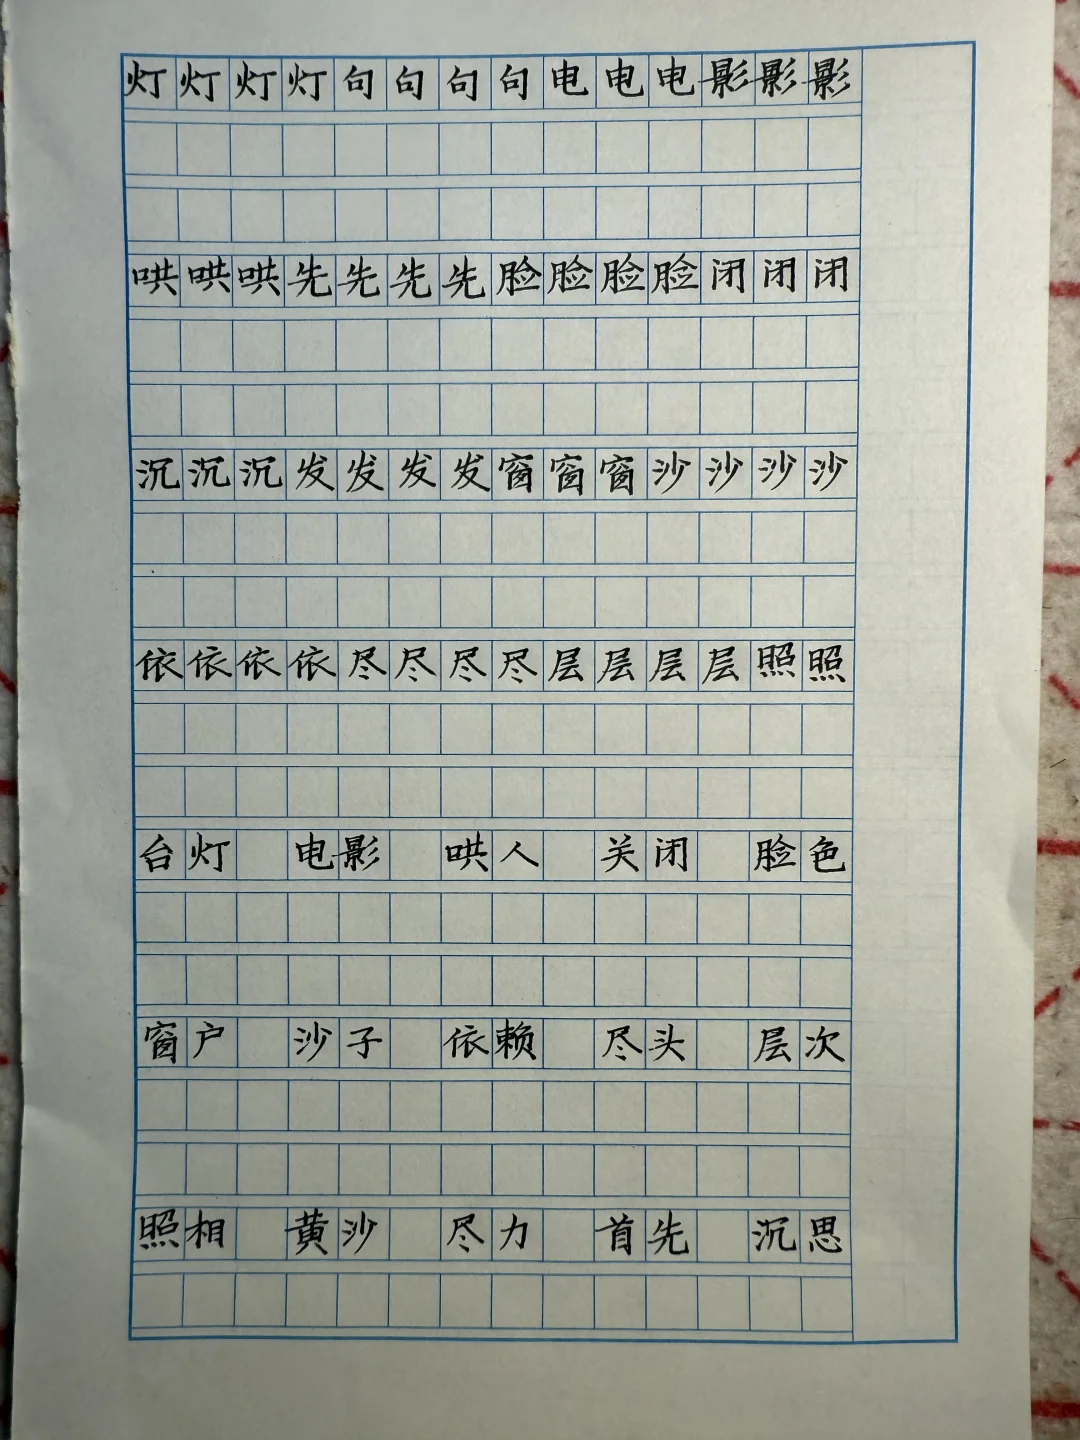 灯灯灯灯句句句句电电电影影影
哄哄哄先先先先脸脸脸脸闭闭闭
沉沉沉发发发发窗窗窗沙沙沙沙
依依依依尽尽尽尽层层层层照照
台灯 电影 哄人 关闭 脸色
窗户 沙子 依赖 尽头 层次
照相 黄沙 尽力 首先 沉思